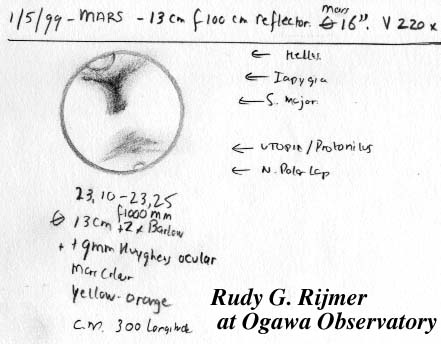 1/5/99 - MARS - 13 cm f 100 cm reflector. Mars ϴ 16". V 220 x
← Hellas
← Iapygia
← S. Major.
← UTOPIA / Protonilus
← N. Polar Cap
23,10 - 23,25
f1000 mm
ϴ 13 cm + 2 x Barlow
+ 9mm Huyghens ocular
Mars Colour
Yellow-orange
C.M. 300 Longitude
Rudy G. Rijmer
at Ogawa Observatory